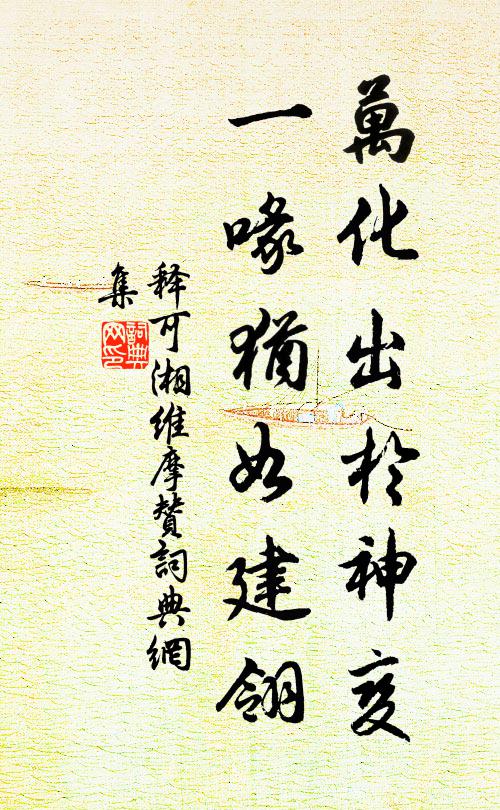 萬化出於神變
一喙猶如建翎
释可湘維摩贊詞典網
集
詞典
网印